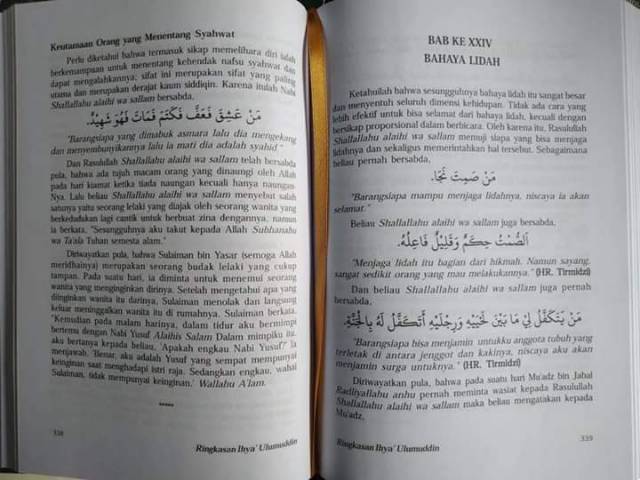 Keutamaan Orang yang Menentang Syahwat
Perlu diketahui bahwa termasuk sikap memelihara diri ialah
berkemampuan untuk menentang kehendak nafsu syahwat dan
dapat mengalahkannya; sifat ini merupakan sifat yang paling
utama dan merupakan derajat kaum siddiqin. Karena itulah Nabi
Shallallahu alaihi wa sallam bersabda,
مَنْ عَشِقَ فَعَفَّ فَكَتَمَ فَمَاتَ فَهُوَ شَهِيْدٌ.
"Barangsiapa yang dimabuk asmara lalu dia mengekang
dan menyembunyikannya lalu ia mati dia adalah syahid"
Dan Rasulullah Shallallahu alaihi wa sallam telah bersabda
pula, bahwa ada tujuh macam orang yang dinaungi oleh Allah
pada hari kiamat ketika tiada naungan kecuali hanya naungan-
Nya. Lalu beliau Shallallahu alaihi wa sallam menyebut salah
satunya yaitu seorang lelaki yang diajak oleh seorang wanita yang
berkedudukan lagi cantik untuk berbuat zina dengannya, namun
ia berkata, "Sesungguhnya aku takut kepada Allah Subhanahu
wa Ta'ala Tuhan semesta alam."
Diriwayatkan pula, bahwa Sulaiman bin Yasar (semoga Allah
meridhainya) merupakan seorang budak lelaki yang cukup
tampan. Pada suatu hari, ia diminta untuk menemui seorang
wanita yang menginginkan dirinya. Setelah mengetahui apa yang
diinginkan wanita itu darinya, Sulaiman menolak dan langsung
keluar meninggalkan wanita itu di rumahnya. Sulaiman berkata,
"Kemudian pada malam harinya, dalam tidur aku bermimpi
bertemu dengan Nabi Yusuf Alaihis Salam Dalam mimpiku itu,
aku bertanya kepada beliau, 'Apakah engkau Nabi Yusuf?' Ia
menjawab, 'Benar, aku adalah Yusuf yang sempat mempunyai
keinginan saat menghadapi istri raja. Sedangkan engkau, wahai
Sulaiman, tidak mempunyai keinginan.' Wallahu A'lam.
*****
338
Ringkasan Ihya' Ulumuddin
BAB KE XXIV
BAHAYA LIDAH
Ketahuilah bahwa sesungguhnya bahaya lidah itu sangat besar
dan menyentuh seluruh dimensi kehidupan. Tidak ada cara yang
lebih efektif untuk bisa selamat dari bahaya lidah, kecuali dengan
bersikap proporsional dalam berbicara. Oleh karena itu, Rasulullah
Shallallahu alaihi wa sallam memuji siapa yang bisa menjaga
lidahnya dan sekaligus memerintahkan hal tersebut. Sebagaimana
beliau pernah bersabda,
مَنْ صَمِتَ نَجَا.
"Barangsiapa mampu menjaga lidahnya, niscaya ia akan
selamat."
Beliau Shallallahu alaihi wa sallam juga bersabda,
اَلصَّمْتُ حِكَمٌ وَقَلِيْلٌ فَاعِلُهُ.
"Menjaga lidah itu bagian dari hikmah. Namun sayang,
sangat sedikit orang yang mau melakukannya." (HR. Tirmidzi)
Dan beliau Shallallahu alaihi wa sallam juga pernah
bersabda,
مَنْ يَتَكَفَّلْ لِي مَا بَيْنَ لَحْيَيْهِ وَرِجْلَيْهِ أَتَكَفَّلْ لَهُ بِالْجَنَّةِ.
"Barangsiapa bisa menjamin untukku anggota tubuh yang
terletak di antara jenggot dan kakinya, niscaya aku akan
menjamin surga untuknya." (HR. Tirmidzi)
Diriwayatkan pula, bahwa pada suatu hari Mu'adz bin Jabal
Radliyallahu anhu pernah meminta wasiat kepada Rasulullah
Shallallahu alaihi wa sallam maka beliau mengatakan kepada
Mu'adz,
Ringkasan Ihya' Ulumuddin
339